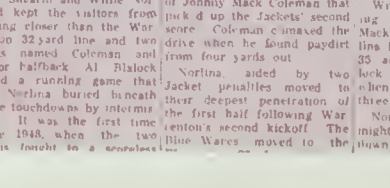 kept the visitors from
ing closer than the War
32 yard line and two
named Coleman and
halfback Al Blalock
d a running game that
Norlina buried beneath
e touchdowns by intermis
It was the first time
1948, when the two
fought to a scoreless
of Johnny Mack Coleman that
pick d up the Jackets' second
score Coleman climaxed the
drive when he found paydirt
from four yards out
Norlina, aided by two
Jacket penalties moved to
their deepest penetration of
the first half following War
renton's second kickoff The
Blue Waves moved to the
Mack
line
35
lock
three
No
might
down